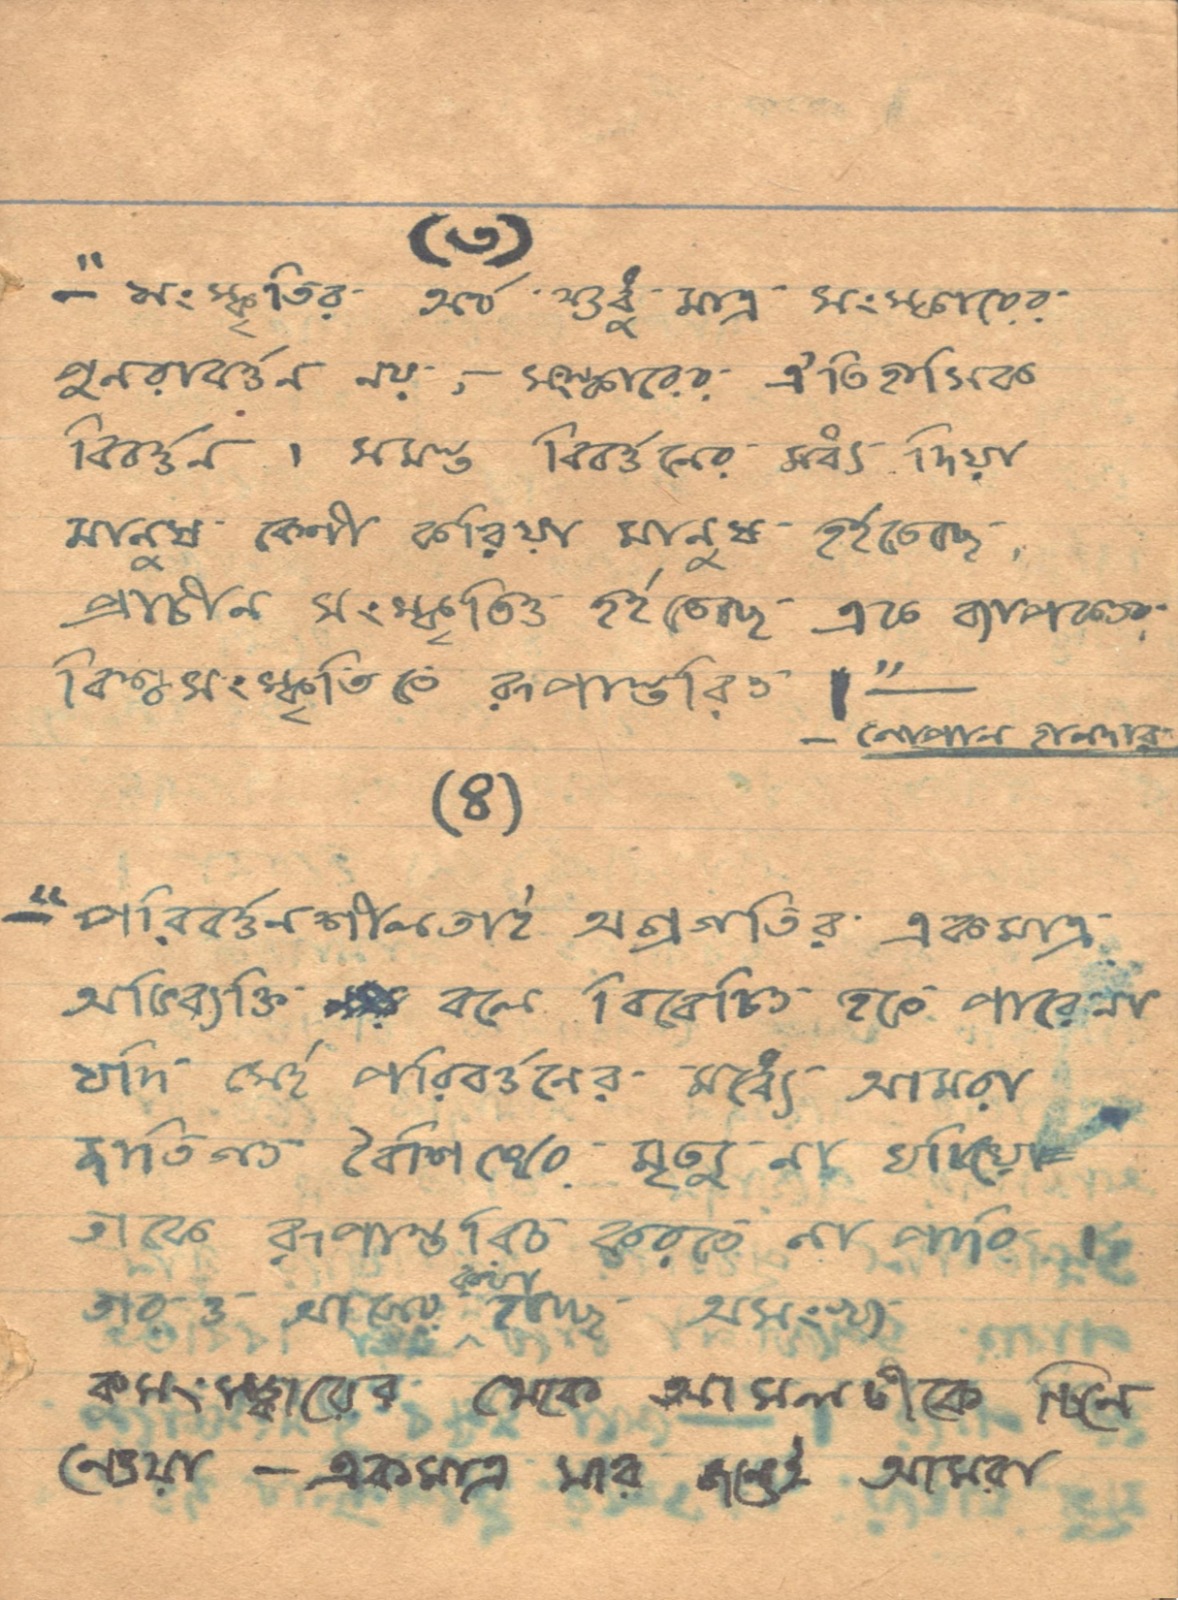 (৩)
–"সংস্কৃতির অর্থ শুধু মাত্র সংস্কারের
পুনরাবর্ত্তন নয়, – সংস্কারের ঐতিহাসিক
বিবর্ত্তন । সমস্ত বিবর্ত্তনের মধ্য দিয়া
মানুষ বেশী করিয়া মানুষ হইতেছে,
প্রাচীন সংস্কৃতিও হইতেছে এতে ব্যাপকতর
বিশ্বসংস্কৃতিতে রূপান্তরিত ।"—
– গোপাল হালদার
(৪)
–"পরিবর্ত্তনশীলতাই অগ্রগতির একমাত্র
অভিব্যক্তি বলে বিবেচিত হতে পারেনা
যদি সেই পরিবর্ত্তনের মধ্যে আমরা
জাতিগত বৈশিষ্ট্যের মৃত্যু না ঘটিয়ে
তাকে রূপান্তরিত করতে না পারি ।
তারও আগের কথা হচ্ছে অসংখ্য
কুসংস্কারের থেকে আসলটীকে চিনে
নেওয়া – একমাত্র যার জন্যেই আমরা